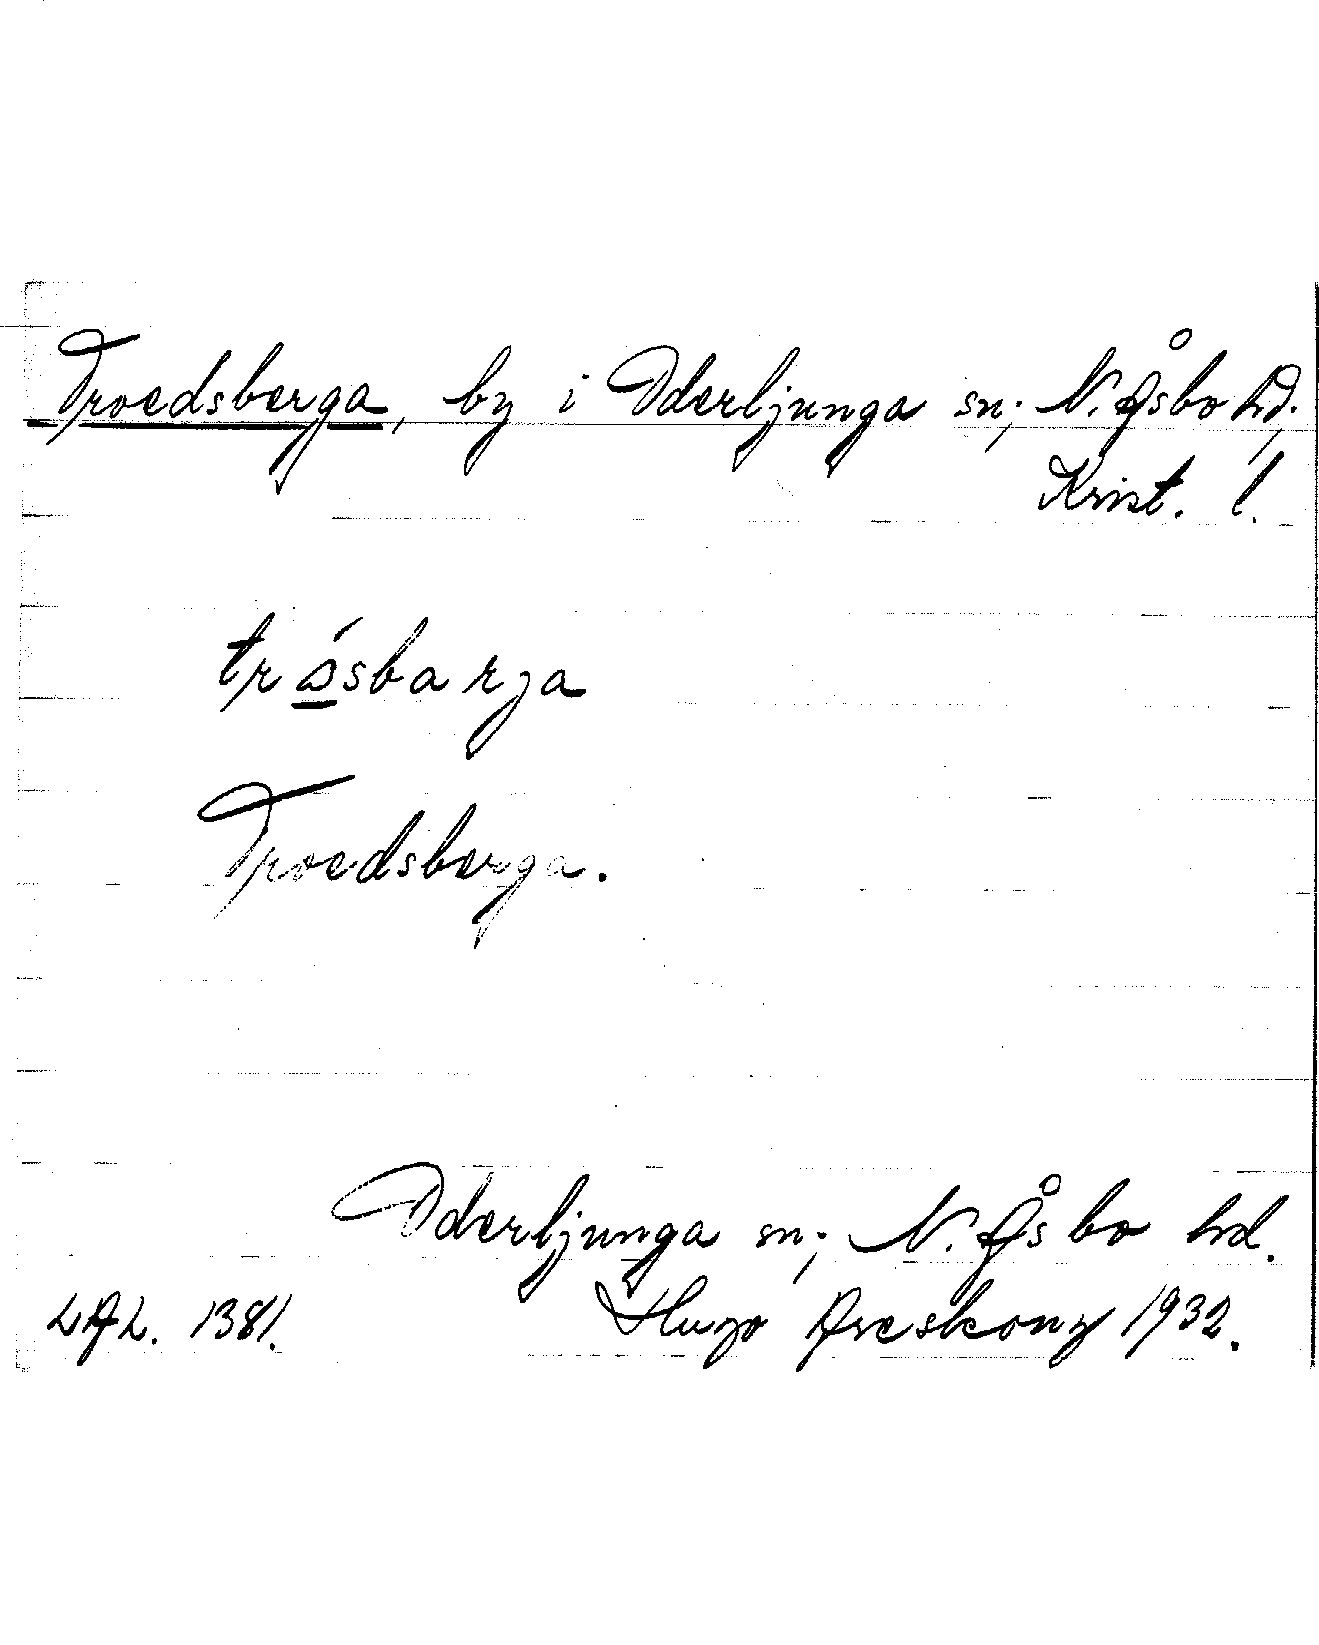 Troedsberga, by i Oderljunga sn; N. Åsbo hd;
Krist. l.
trósbarja
Troedsberga.
Oderljunga sn; N. Åsbo hd.
LAL. 1381. Hugo Areskoug 1932.